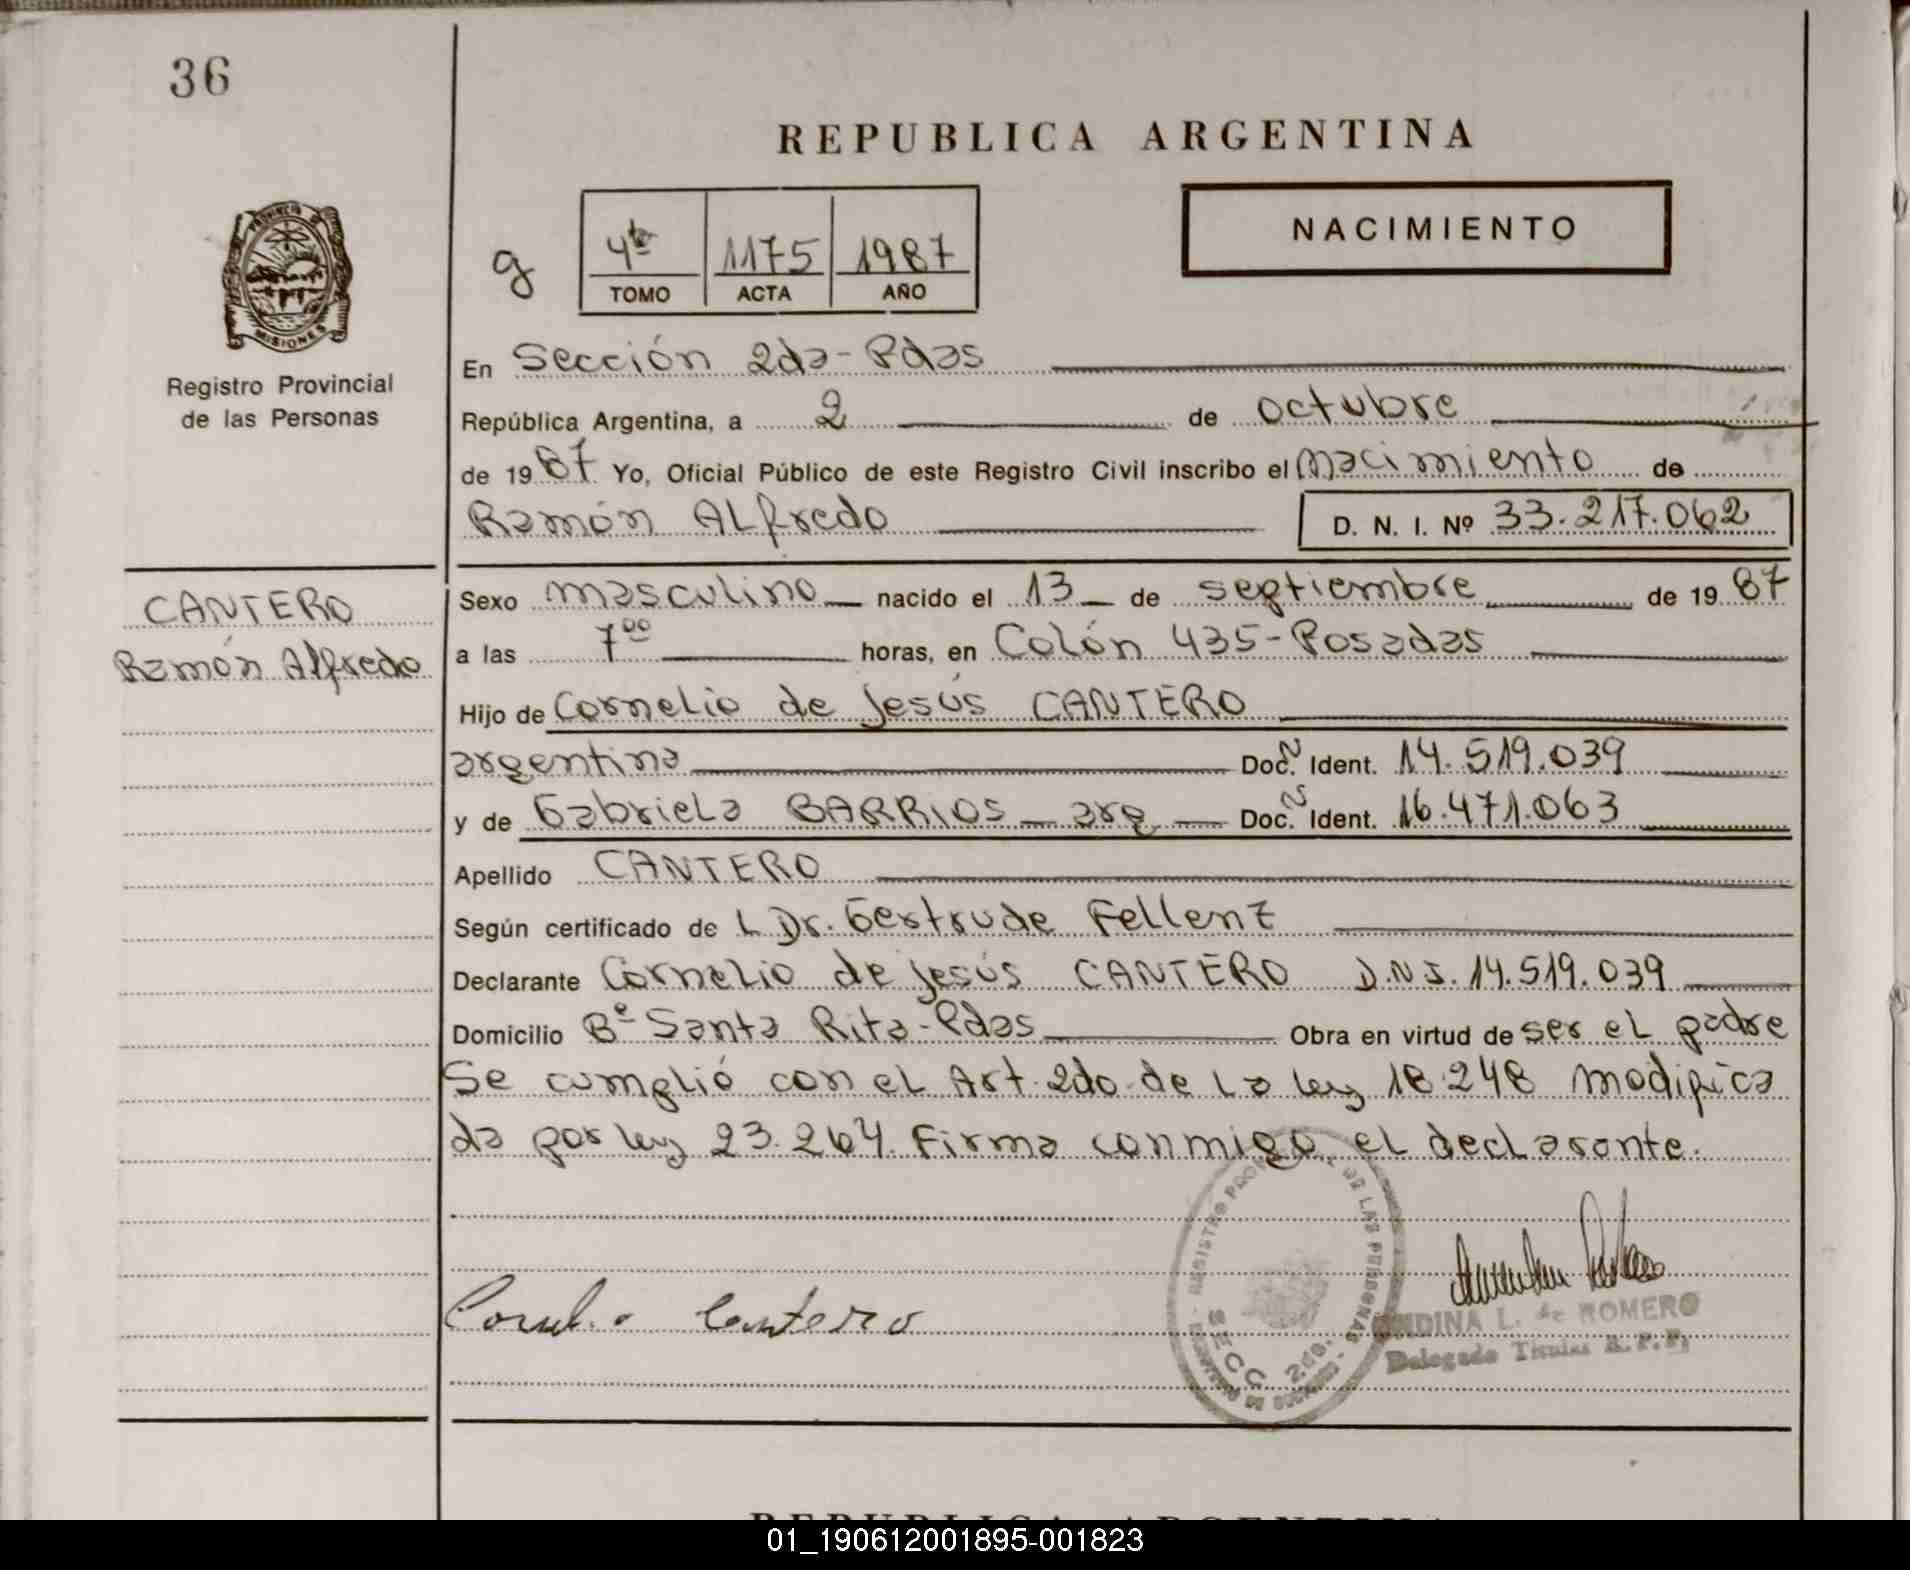 36
REPUBLICA ARGENTINA
NACIMIENTO
g
4to 1175 1987
TOMO ACTA AÑO
PROVINCIA D
MISIONES
Registro Provincial
de las Personas
En Sección 2da-Pdas
República Argentina, a 2 de octubre
de 1987 Yo, Oficial Público de este Registro Civil inscribo el nacimiento de
Ramón ALfredo D. N. I. Nº 33.217.062
CANTERO
Ramón Alfredo
Sexo masculino nacido el 13 de septiembre de 1987
a las 7⁰⁰ horas, en Colón 435-Posadas
Hijo de Cornelio de Jesús CANTERO
argentina Doc. N Ident. 14.519.039
y de Gabriela BARRIOS arg Doc. N Ident. 16.471.063
Apellido CANTERO
Según certificado de L Dr. Gertrude Fellenz
Declarante Cornelio de Jesús CANTERO D.N.I. 14.519.039
Domicilio Bº Santa Rita-Pdas Obra en virtud de ser el padre
Se cumplió con el Art. 2do de la ley 18.248 modifica
da por ley 23.264. Firma conmigo el declarante.
REGISTRO PRO DE LAS PERSONAS
SECC. 2da.
Cornelio Cantero
L. de ROMERO
Delegado Titular R.P.P.
REPUBLICA ARGENTINA
01_190612001895-001823